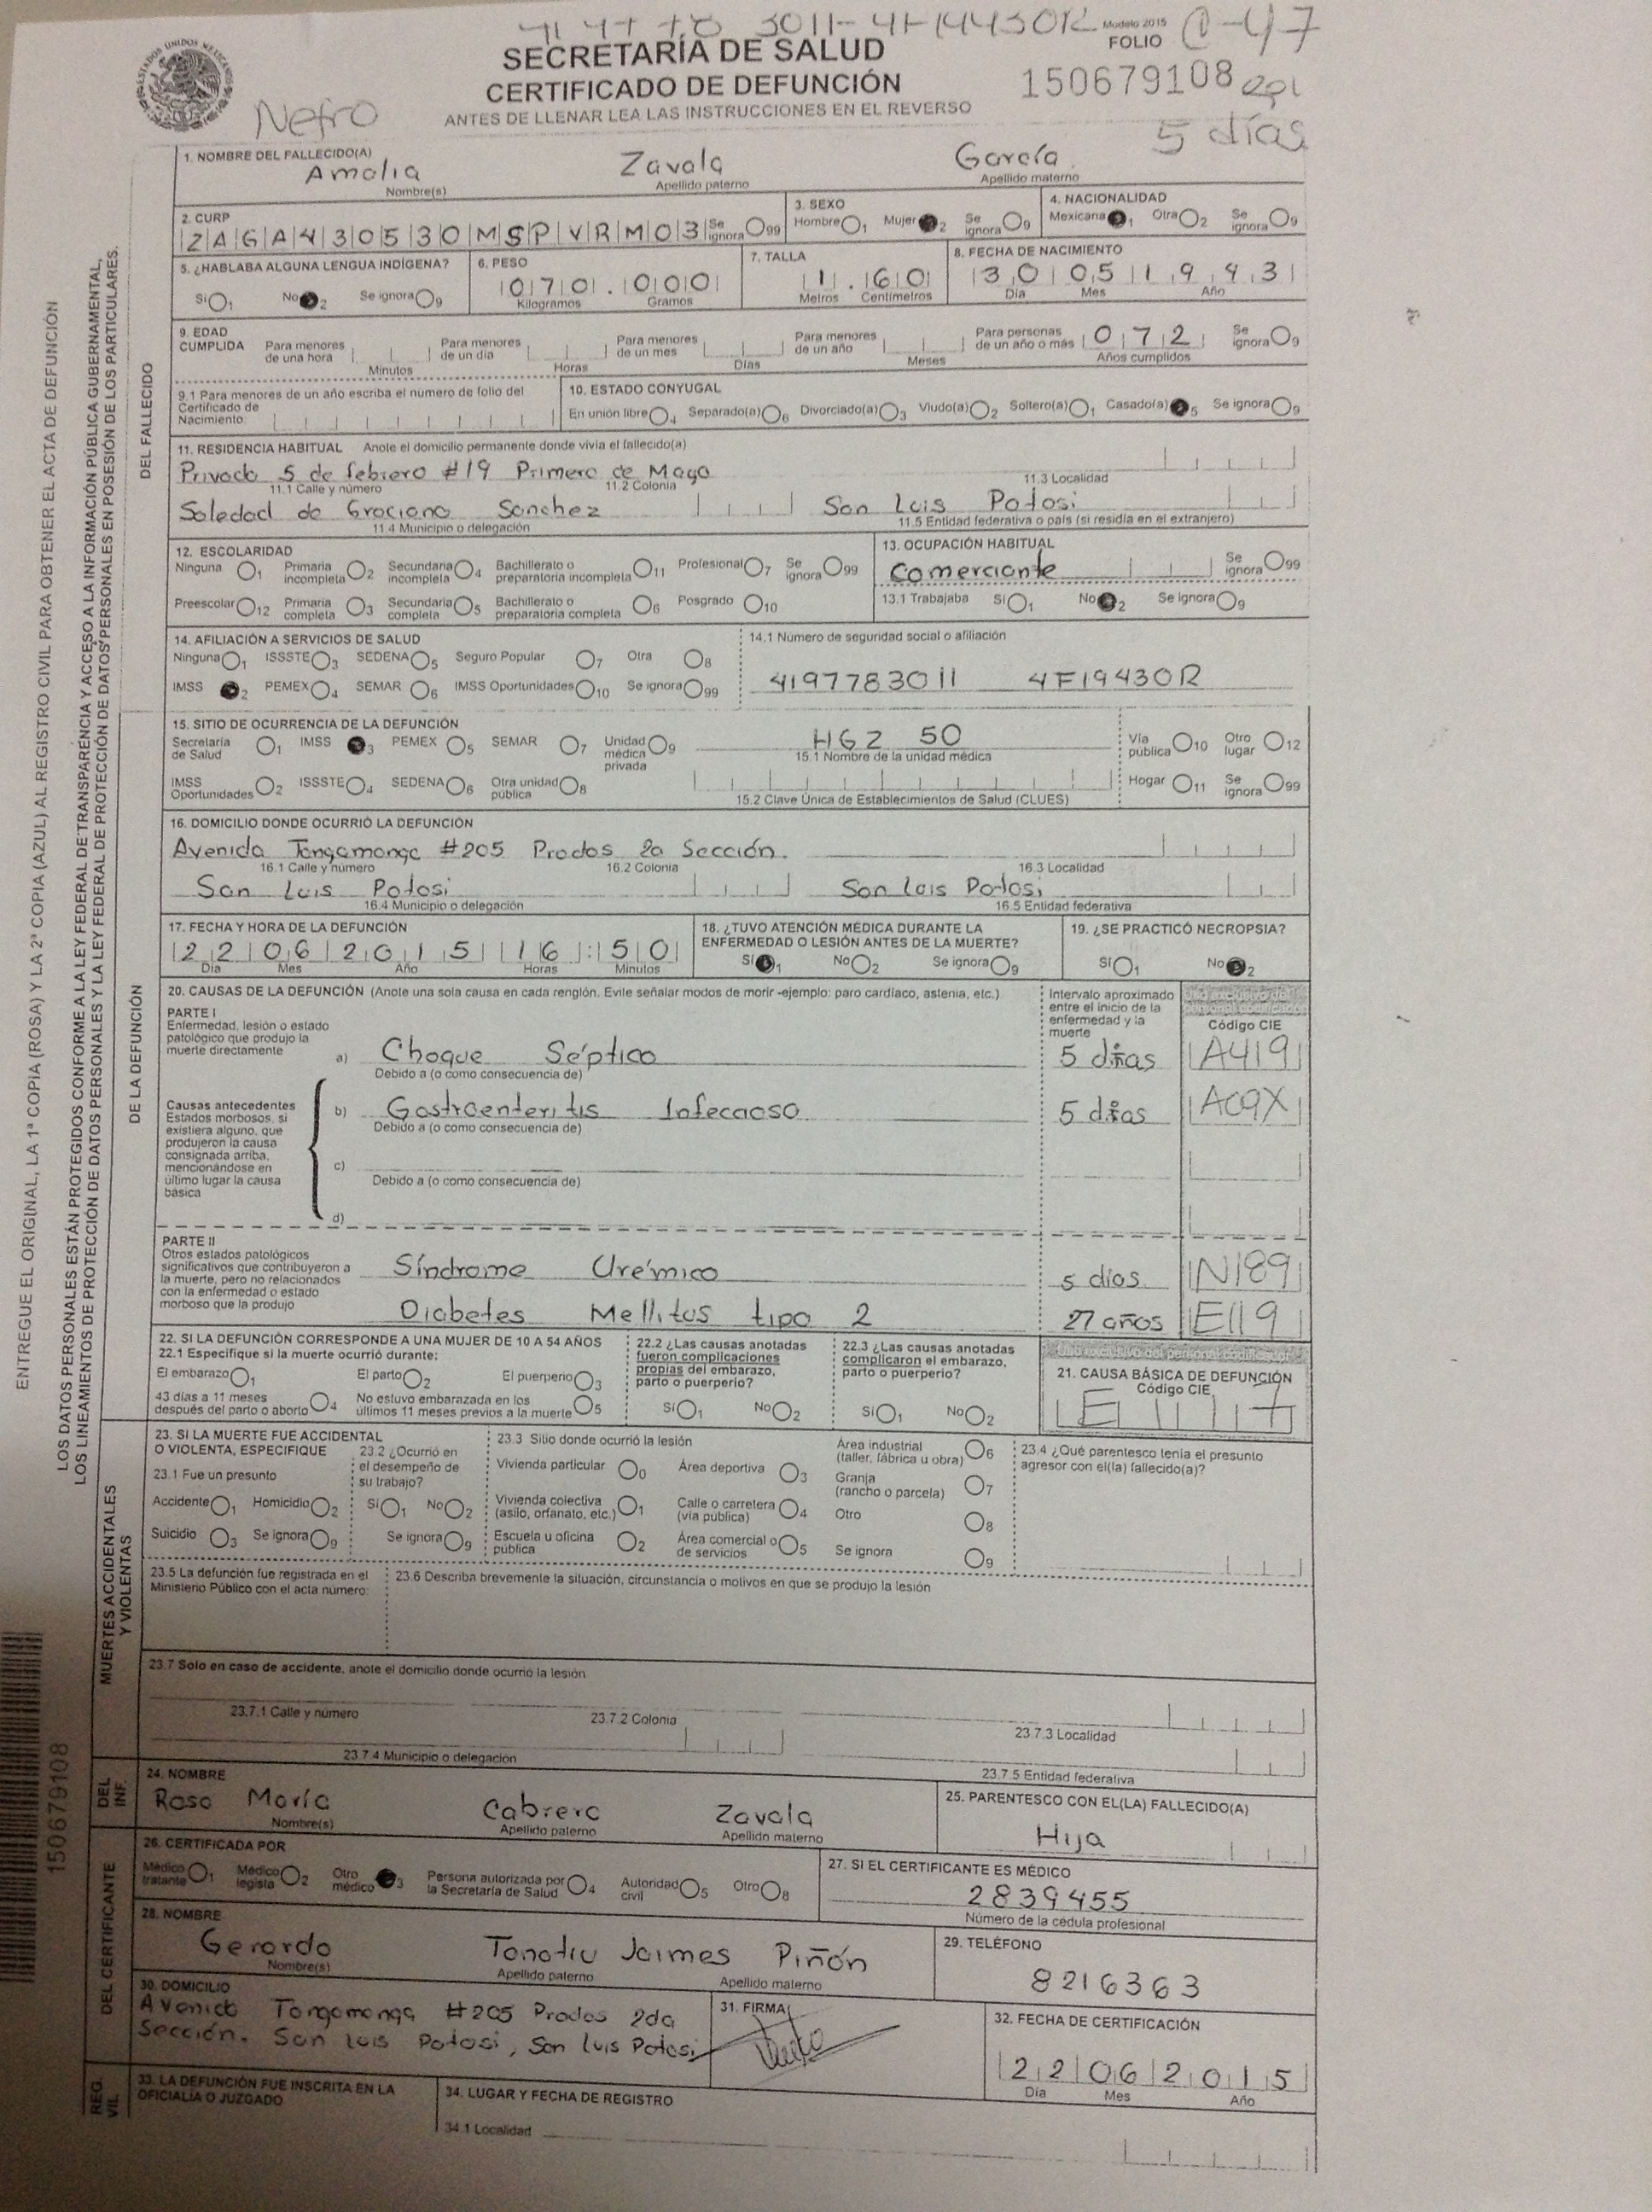 Modelo 2015
SECRETARÍA DE SALUD
FOLIO
CERTIFICADO DE DEFUNCIÓN
150679108
ANTES DE LLENAR LEA LAS INSTRUCCIONES EN EL REVERSO
Nefro
5 días
1. NOMBRE DEL FALLECIDO(A)
Amalia Zavala García
Nombre(s) Apellido paterno Apellido materno
2. CURP
ZAGA430530MSPVRM03 Se ignora 99
3. SEXO
Hombre 1 Mujer 2 Se ignora 9
4. NACIONALIDAD
Mexicana 1 Otra 2 Se ignora 9
5. ¿HABLABA ALGUNA LENGUA INDÍGENA?
Sí 1 No 2 Se ignora 9
6. PESO
070.000
Kilogramos Gramos
7. TALLA
1.60
Metros Centímetros
8. FECHA DE NACIMIENTO
30 05 1943
Día Mes Año
9. EDAD CUMPLIDA
Para menores de una hora Minutos
Para menores de un día Horas
Para menores de un mes Días
Para menores de un año Meses
Para personas de un año o más 072 Años cumplidos
Se ignora 9
9.1 Para menores de un año escriba el número de folio del Certificado de Nacimiento
10. ESTADO CONYUGAL
En unión libre 4 Separado(a) 6 Divorciado(a) 3 Viudo(a) 2 Soltero(a) 1 Casado(a) 5 Se ignora 9
11. RESIDENCIA HABITUAL Anote el domicilio permanente donde vivía el fallecido(a)
Privada 5 de febrero #19 Primero de Mayo
11.1 Calle y número 11.2 Colonia 11.3 Localidad
Soledad de Graciano Sanchez San Luis Potosi
11.4 Municipio o delegación 11.5 Entidad federativa o país (si residía en el extranjero)
12. ESCOLARIDAD
Ninguna 1 Primaria incompleta 2 Secundaria incompleta 4 Bachillerato o preparatoria incompleta 11 Profesional 7 Se ignora 99
Preescolar 12 Primaria completa 3 Secundaria completa 5 Bachillerato o preparatoria completa 6 Posgrado 10
13. OCUPACIÓN HABITUAL
comerciante Se ignora 99
13.1 Trabajaba Sí 1 No 2 Se ignora 9
14. AFILIACIÓN A SERVICIOS DE SALUD
Ninguna 1 ISSSTE 3 SEDENA 5 Seguro Popular 7 Otra 8
IMSS 2 PEMEX 4 SEMAR 6 IMSS Oportunidades 10 Se ignora 99
14.1 Número de seguridad social o afiliación
4197783011 4F19430R
15. SITIO DE OCURRENCIA DE LA DEFUNCIÓN
Secretaría de Salud 1 IMSS 3 PEMEX 5 SEMAR 7 Unidad médica privada 9
IMSS Oportunidades 2 ISSSTE 4 SEDENA 6 Otra unidad pública 8
HGZ 50
15.1 Nombre de la unidad médica
15.2 Clave Única de Establecimientos de Salud (CLUES)
Vía pública 10 Otro lugar 12
Hogar 11 Se ignora 99
16. DOMICILIO DONDE OCURRIÓ LA DEFUNCIÓN
Avenida Tangamanga #205 Prados 2a Sección.
16.1 Calle y número 16.2 Colonia 16.3 Localidad
San Luis Potosi San Luis Potosi
16.4 Municipio o delegación 16.5 Entidad federativa
17. FECHA Y HORA DE LA DEFUNCIÓN
22 06 2015 16:50
Día Mes Año Horas Minutos
18. ¿TUVO ATENCIÓN MÉDICA DURANTE LA ENFERMEDAD O LESIÓN ANTES DE LA MUERTE?
Sí 1 No 2 Se ignora 9
19. ¿SE PRACTICÓ NECROPSIA?
Sí 1 No 2
20. CAUSAS DE LA DEFUNCIÓN (Anote una sola causa en cada renglón. Evite señalar modos de morir -ejemplo: paro cardíaco, astenia, etc.)
Intervalo aproximado entre el inicio de la enfermedad y la muerte
Código CIE
PARTE I
Enfermedad, lesión o estado patológico que produjo la muerte directamente
a) Choque Séptico 5 días A419
Debido a (o como consecuencia de)
Causas antecedentes
Estados morbosos, si existiera alguno, que produjeron la causa consignada arriba, mencionándose en último lugar la causa básica
b) Gastroenteritis Infecciosa 5 días A09X
Debido a (o como consecuencia de)
c)
Debido a (o como consecuencia de)
d)
PARTE II
Otros estados patológicos significativos que contribuyeron a la muerte, pero no relacionados con la enfermedad o estado morboso que la produjo
Síndrome Urémico 5 días N189
Diabetes Mellitus tipo 2 27 años E119
22. SI LA DEFUNCIÓN CORRESPONDE A UNA MUJER DE 10 A 54 AÑOS
22.1 Especifique si la muerte ocurrió durante:
El embarazo 1 El parto 2 El puerperio 3
43 días a 11 meses después del parto o aborto 4 No estuvo embarazada en los últimos 11 meses previos a la muerte 5
22.2 ¿Las causas anotadas fueron complicaciones propias del embarazo, parto o puerperio?
Sí 1 No 2
22.3 ¿Las causas anotadas complicaron el embarazo, parto o puerperio?
Sí 1 No 2
21. CAUSA BÁSICA DE DEFUNCIÓN
Código CIE
E117
23. SI LA MUERTE FUE ACCIDENTAL O VIOLENTA, ESPECIFIQUE
23.1 Fue un presunto
Accidente 1 Homicidio 2
Suicidio 3 Se ignora 9
23.2 ¿Ocurrió en el desempeño de su trabajo?
Sí 1 No 2
Se ignora 9
23.3 Sitio donde ocurrió la lesión
Vivienda particular 0 Área deportiva 3 Área industrial (taller, fábrica u obra) 6
Vivienda colectiva (asilo, orfanato, etc.) 1 Calle o carretera (vía pública) 4 Granja (rancho o parcela) 7
Escuela u oficina pública 2 Área comercial o de servicios 5 Otro 8
Se ignora 9
23.4 ¿Qué parentesco tenía el presunto agresor con el(la) fallecido(a)?
23.5 La defunción fue registrada en el Ministerio Público con el acta número:
23.6 Describa brevemente la situación, circunstancia o motivos en que se produjo la lesión
23.7 Solo en caso de accidente, anote el domicilio donde ocurrió la lesión
23.7.1 Calle y número 23.7.2 Colonia 23.7.3 Localidad
23.7.4 Municipio o delegación 23.7.5 Entidad federativa
24. NOMBRE
Rosa María Cabrera Zavala
Nombre(s) Apellido paterno Apellido materno
25. PARENTESCO CON EL(LA) FALLECIDO(A)
Hija
26. CERTIFICADA POR
Médico tratante 1 Médico legista 2 Otro médico 3 Persona autorizada por la Secretaría de Salud 4 Autoridad civil 5 Otro 8
27. SI EL CERTIFICANTE ES MÉDICO
2839455
Número de la cédula profesional
28. NOMBRE
Gerardo Tonatiu Jaimes Piñón
Nombre(s) Apellido paterno Apellido materno
29. TELÉFONO
8216363
30. DOMICILIO
Avenida Tangamanga #205 Prados 2da
Sección. San Luis Potosi, San Luis Potosi
31. FIRMA
32. FECHA DE CERTIFICACIÓN
22 06 2015
Día Mes Año
33. LA DEFUNCIÓN FUE INSCRITA EN LA OFICIALÍA O JUZGADO
34. LUGAR Y FECHA DE REGISTRO
34.1 Localidad
ENTREGUE EL ORIGINAL, LA 1ª COPIA (ROSA) Y LA 2ª COPIA (AZUL) AL REGISTRO CIVIL PARA OBTENER EL ACTA DE DEFUNCIÓN
LOS DATOS PERSONALES ESTÁN PROTEGIDOS CONFORME A LA LEY FEDERAL DE TRANSPARENCIA Y ACCESO A LA INFORMACIÓN PÚBLICA GUBERNAMENTAL,
LOS LINEAMIENTOS DE PROTECCIÓN DE DATOS PERSONALES Y LA LEY FEDERAL DE PROTECCIÓN DE DATOS PERSONALES EN POSESIÓN DE LOS PARTICULARES.
DEL FALLECIDO
DE LA DEFUNCIÓN
MUERTES ACCIDENTALES Y VIOLENTAS
DEL INF.
DEL CERTIFICANTE
150679108